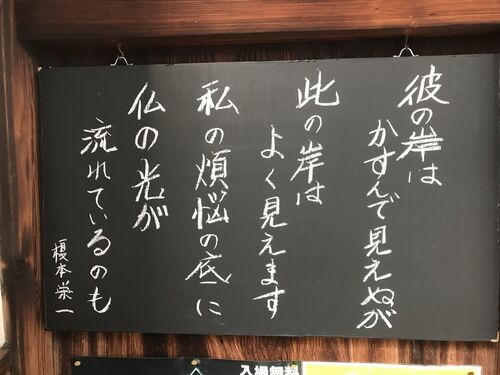 彼の岸は
かすんで見えぬが
此の岸は
よく見えます
私の煩悩の底に
仏の光が
流れているのも
榎本栄一
入場無料